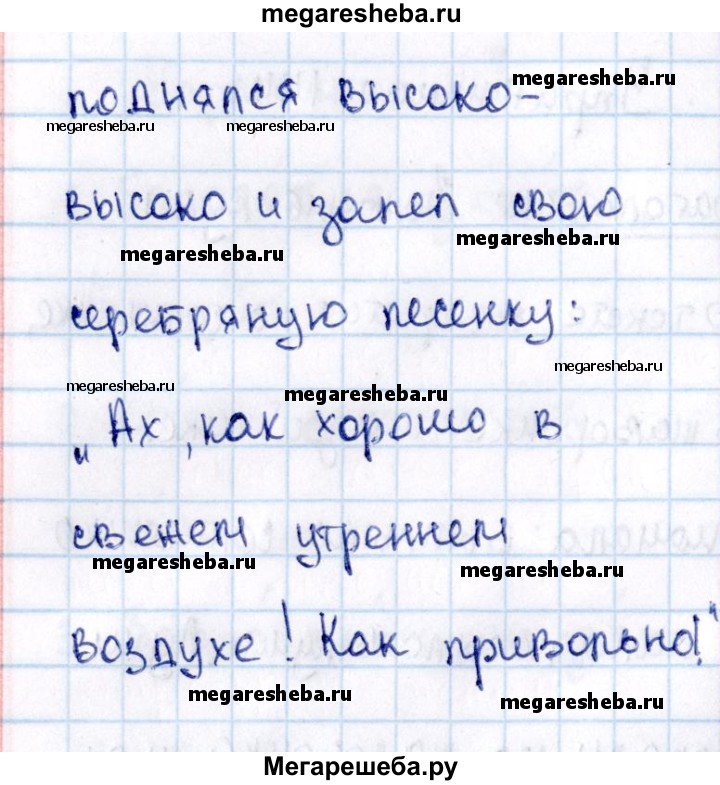 megaresheba.ru
поднялся высоко-
megaresheba.ru
megaresheba.ru megaresheba.ru
высоко и запел свою
megaresheba.ru megaresheba.ru
серебряную песенку:
megaresheba.ru
megaresheba.ru megaresheba.ru
„Ах, как хорошо в
свежем утреннем
megaresheba.ru megaresheba.ru
воздухе! Как привольно!"
megaresheba.ru megaresheba.ru
Мегарешеба.ру